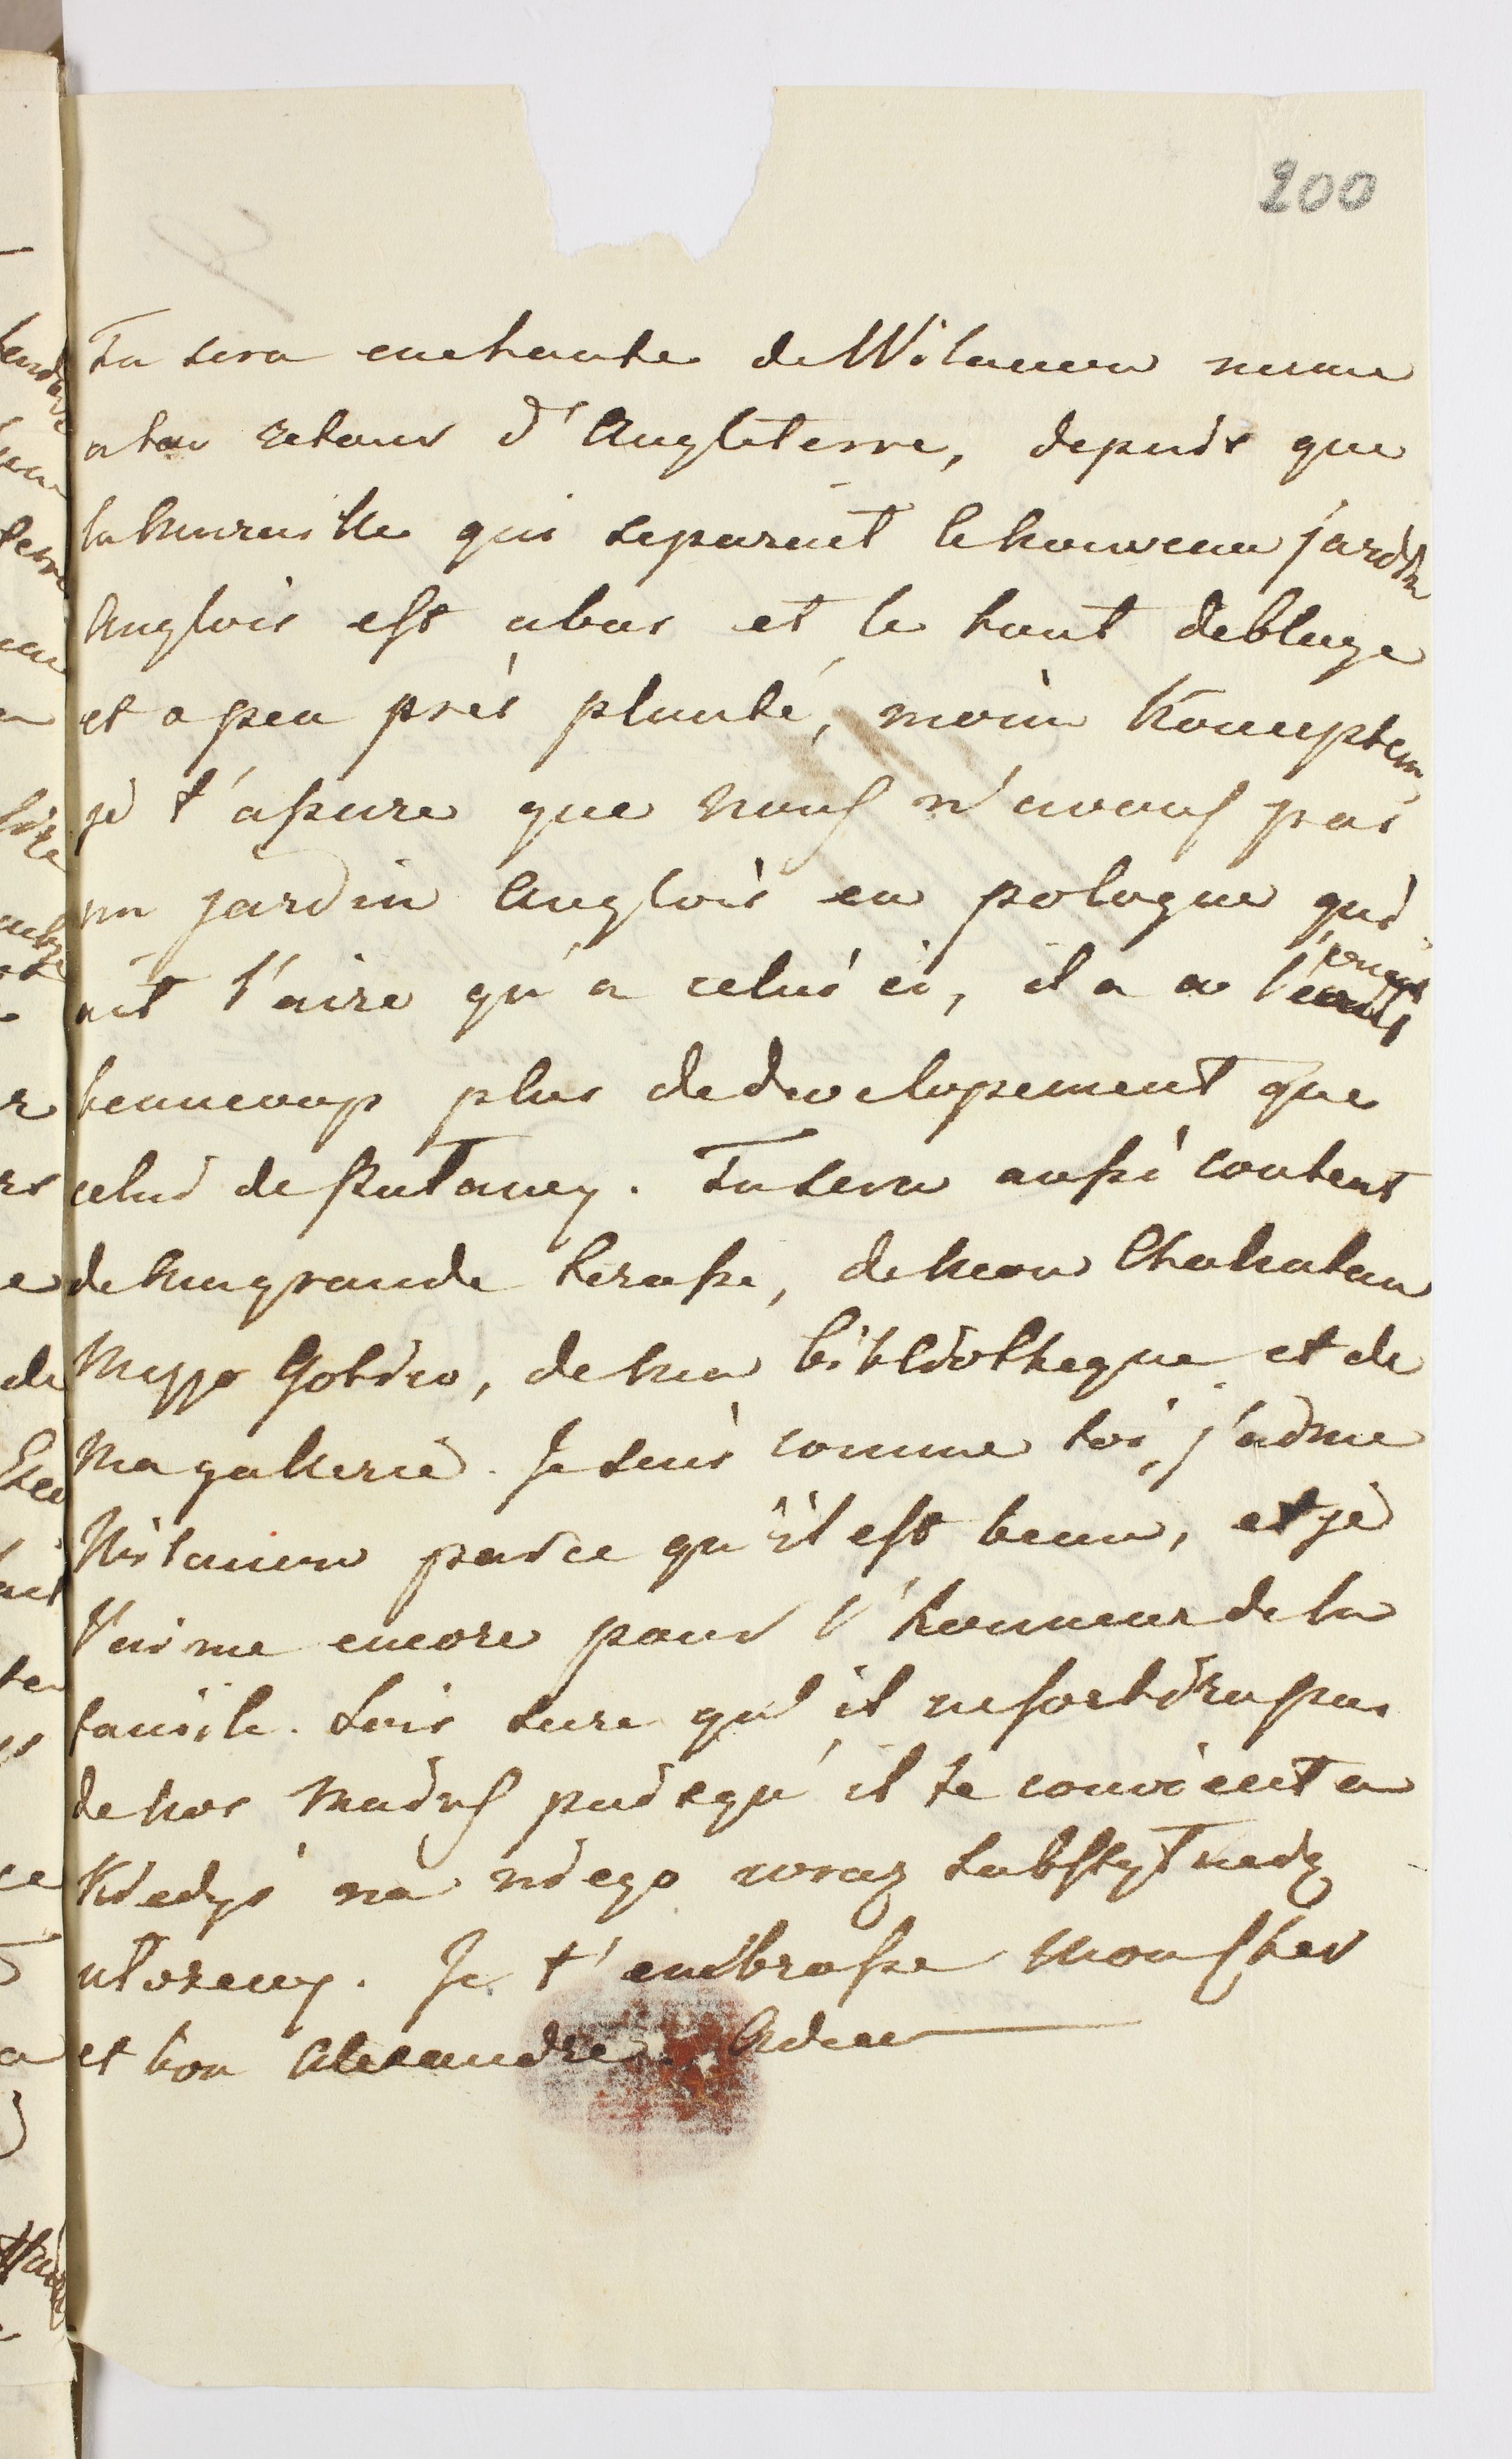 200
Tu sera enchante de Wilanow meme
a ton retour d'Angleterre, depuis que
la muraille qui separoit le nouveau jardin
Anglois est abas et le tout deblaye
et a peu près planté, moim Konceptem
je t'assure que nous n'avons pas
un jardin Anglois en pologne qui
ait l'aire qu'a celui ci, il a a l'
beaucoup plus dedevelopement que
celui de Pulawy. Tu sera aussi content
de ma grande terasse, de mon Chateteau
mezzo Gotico, de ma bibliotheque et de
Ma gallerie. Je suis comme toi, j'aime
Wilanow parce qu'il est beau, et je
l'aime encore pour l'honneur de la
famile. Sois sure qu'il ne sortira pas
de nos mains puisqu'il te convient a
Kiedyś na niego wraz substytucią
utorzeny. Je t'embrasse mon cher
et bon Alexandre. Adieu